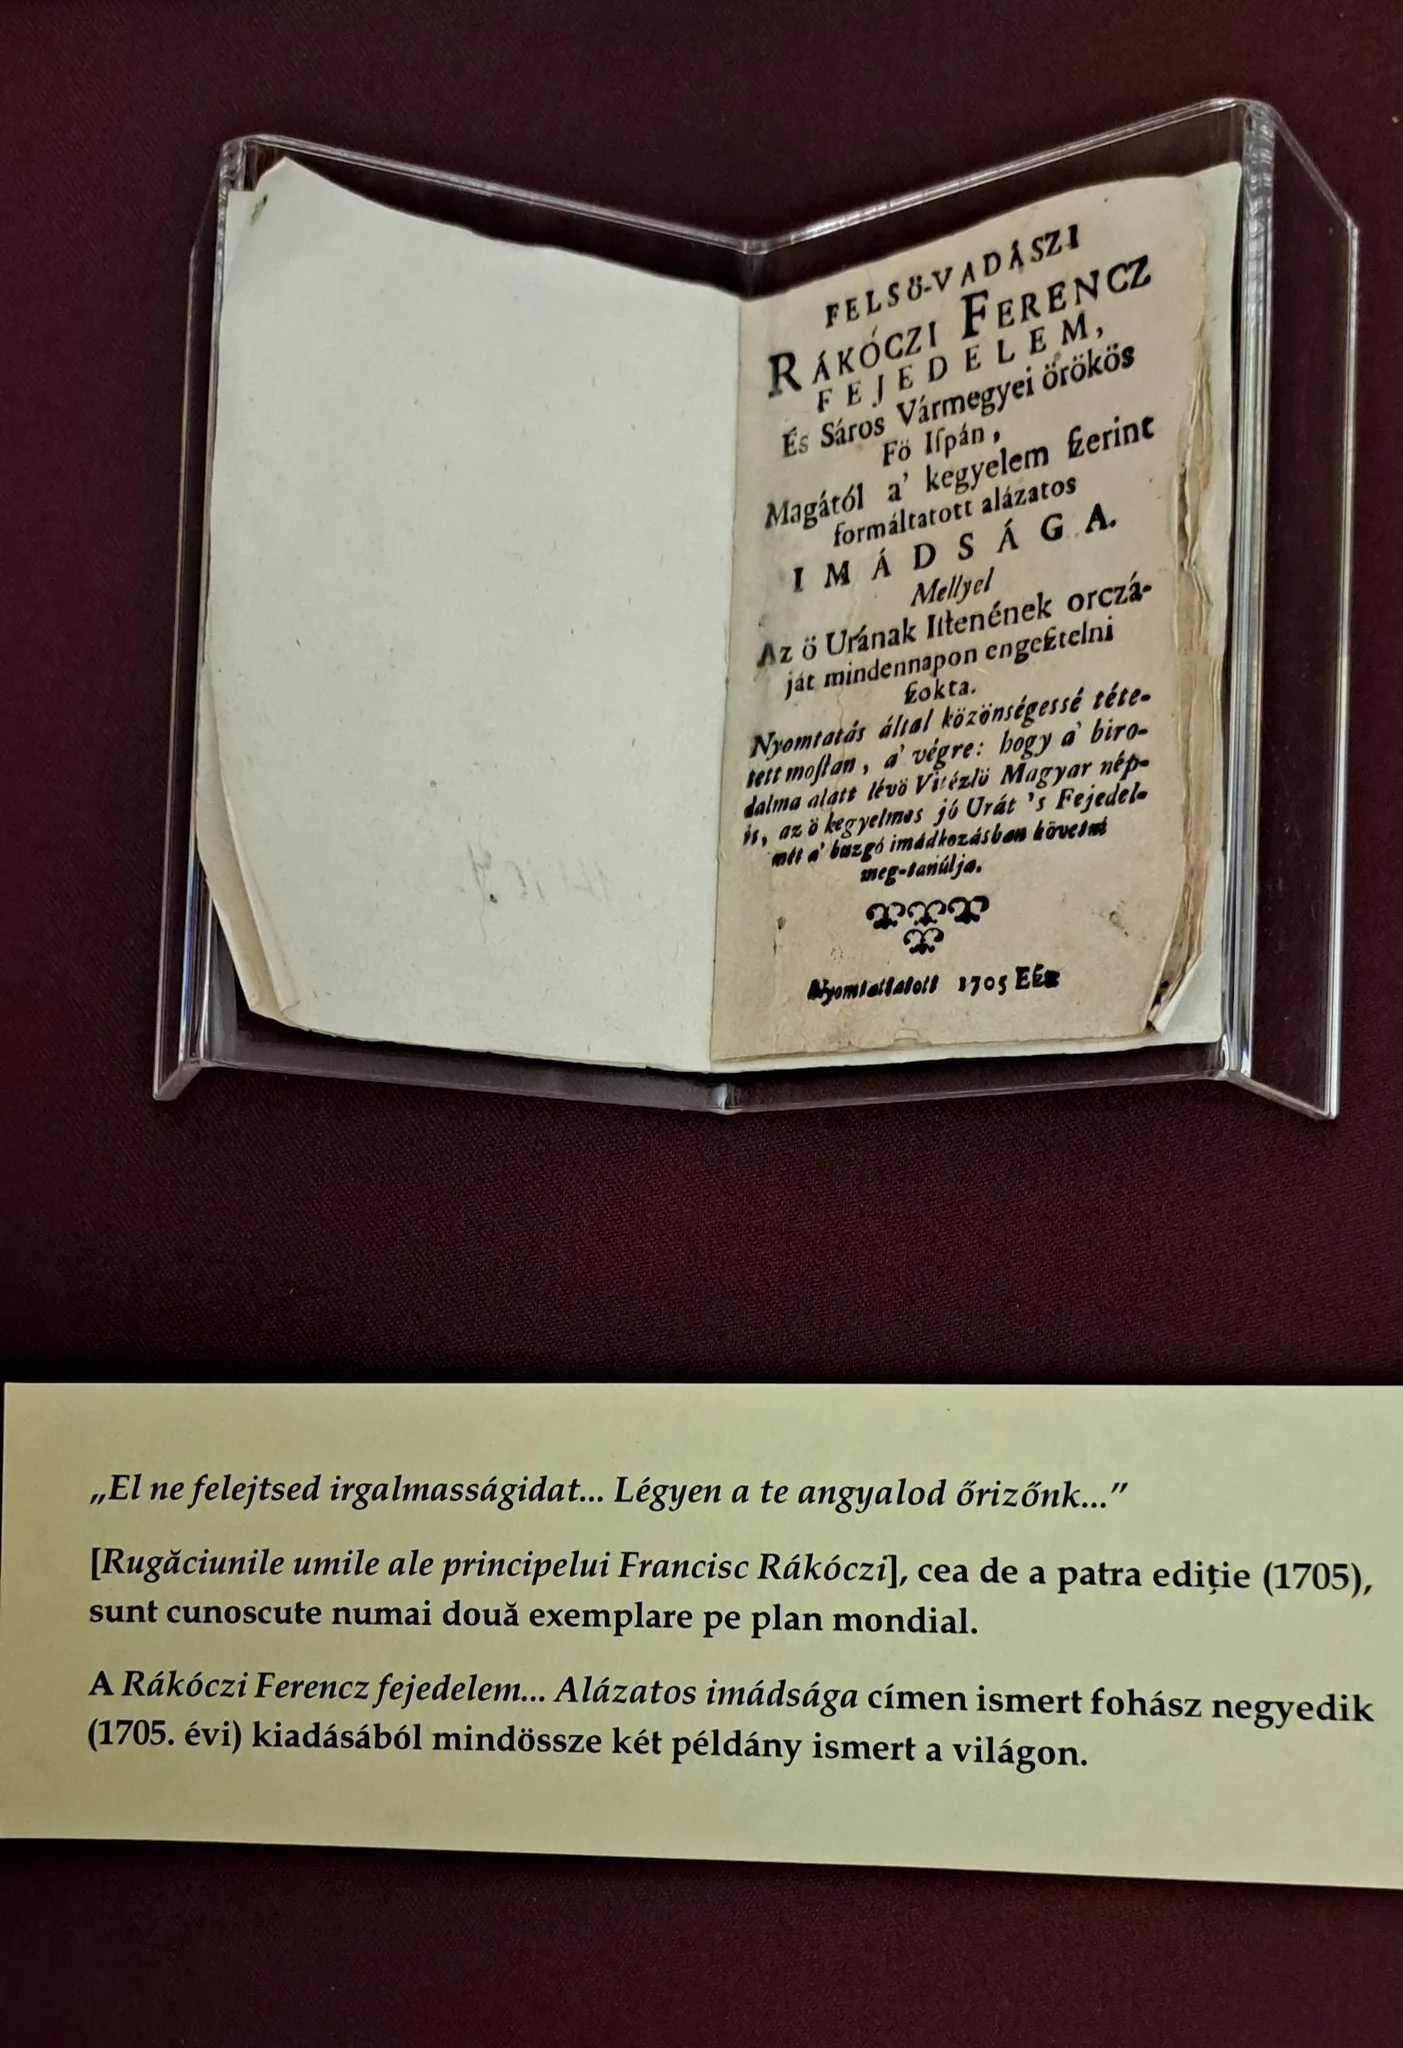 FELSÖ-VADÁSZI
RÁKÓCZI FERENCZ
FEJEDELEM,
És Sáros Vármegyei örökös
Fö Iſpán,
Magától a' kegyelem ſzerint
formáltatott alázatos
IMÁDSÁGA.
Mellyel
Az ö Urának Iſtenének orczá-
ját mindennapon engeſztelni
ſzokta.
Nyomtatás által közönségessé téte-
tett moſtan, a' végre: hogy a' biro-
dalma alatt lévö Vitézlö Magyar nép-
is, az ö kegyelmes jó Urát 's Fejedel-
mét a' buzgó imádkozásban követni
meg-tanúlja.
Nyomtattatott 1705 Eſz
„El ne felejtsed irgalmasságidat... Légyen a te angyalod őrizőnk...”
[Rugăciunile umile ale principelui Francisc Rákóczi], cea de a patra ediție (1705),
sunt cunoscute numai două exemplare pe plan mondial.
A Rákóczi Ferencz fejedelem... Alázatos imádsága címen ismert fohász negyedik
(1705. évi) kiadásából mindössze két példány ismert a világon.